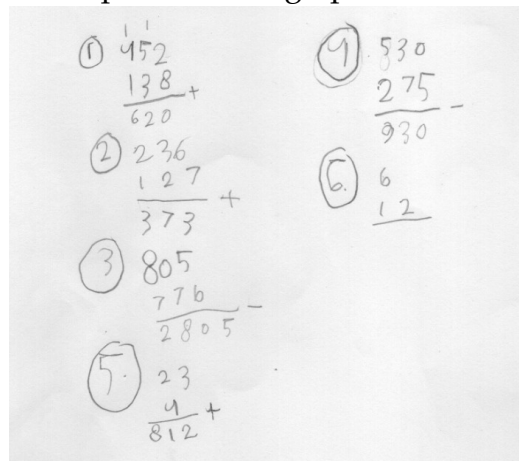 ① 452
138
+
620
② 236
127
+
373
③ 805
776
-
2805
⑤. 23
4
+
812
④ 530
275
-
930
⑥. 6
12